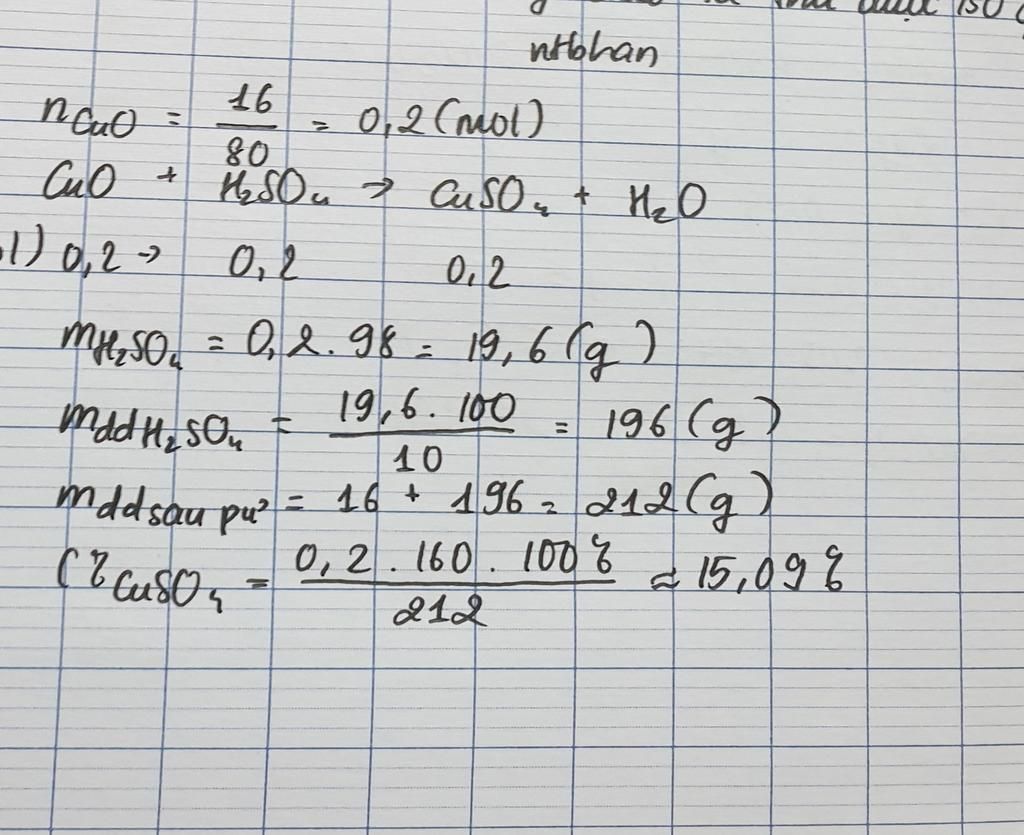 150
nHbhan
nCuO = 16/80 = 0,2 (mol)
CuO + H₂SO₄ → CuSO₄ + H₂O
1) 0,2 → 0,2 0,2
mH₂SO₄ = 0,2 . 98 = 19,6 (g)
mddH₂SO₄ = 19,6 . 100/10 = 196 (g)
mddsau pư² = 16 + 196 = 212 (g)
C%CuSO₄ = 0,2 . 160 . 100%/212 ≈ 15,09%